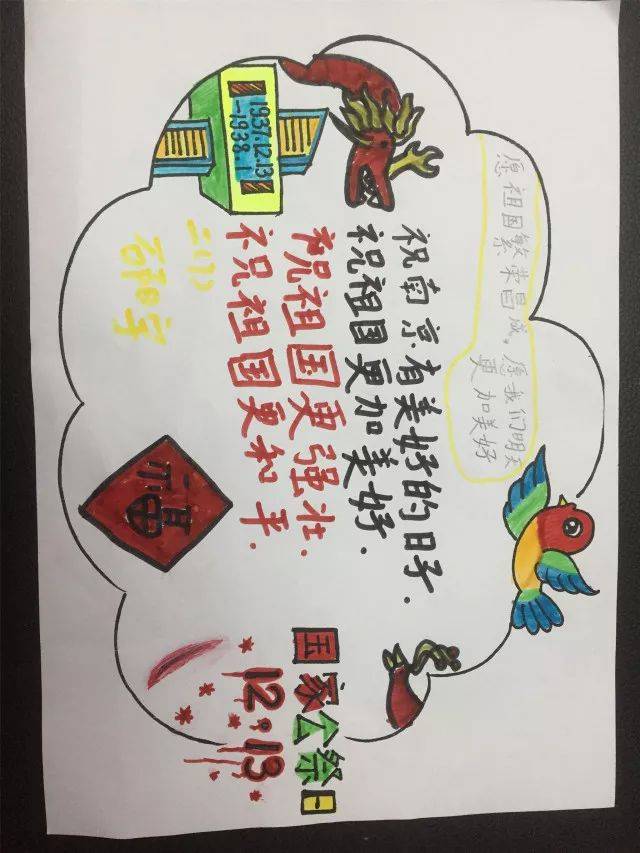 愿祖国繁荣昌成。愿我们明天
更加美好
1937.12.13
-1938.1
祝南京有美好的日子.
祝祖国更加美好.
祝祖国更强壮.
祝祖国更和平.
福
国家公祭日
12.13